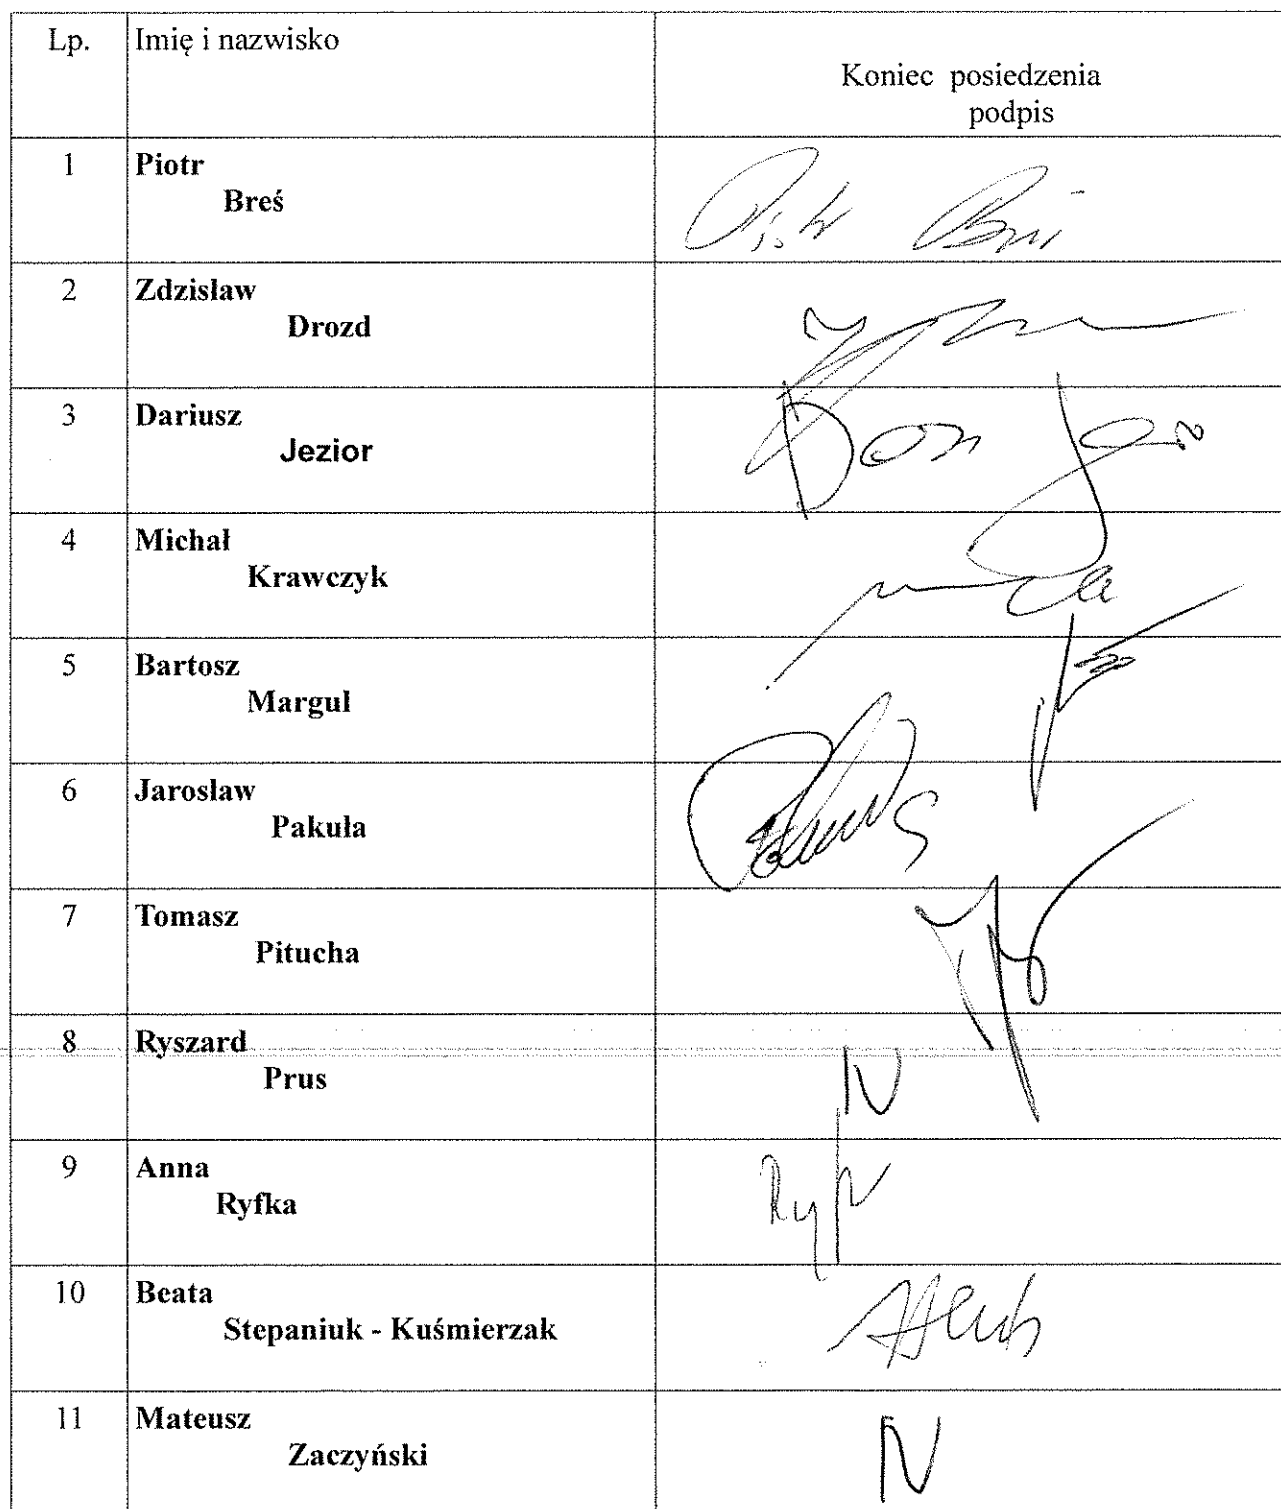 Lp. Imię i nazwisko
Koniec posiedzenia
podpis
1 Piotr
Breś
Piotr Breś
2 Zdzisław
Drozd
3 Dariusz
Jezior
4 Michał
Krawczyk
5 Bartosz
Margul
6 Jarosław
Pakuła
7 Tomasz
Pitucha
8 Ryszard
Prus
N
9 Anna
Ryfka
10 Beata
Stepaniuk - Kuśmierzak
11 Mateusz
Zaczyński
N